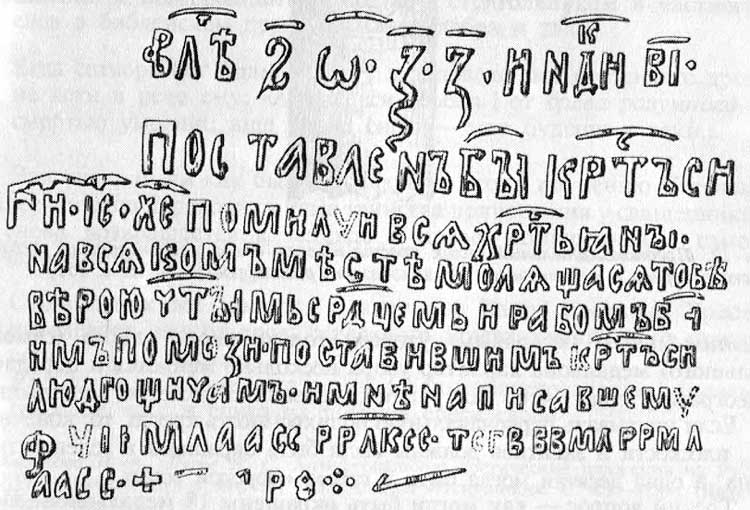 ВЛѢ · Ѕ · Ѡ · Ѯ · З · ИНДИК ВІ ·
ПОСТАВЛЕНЪБЪІ КРТЪСИ
ГИ · ІС · ХЕ ПОМИЛУИ ВСѦ ХРТЬꙖНЪІ ·
NАВСѦКОМЪ МѢСТѢ МОЛѦЩАСѦТОБѢ
ВѢРОЮ ЧТЪІМЬСРДЦЕМЬ И РАБОМЪБЧ
ИМЪПОМОЗИ · ПОСТАВИВШИМЪ КРТЪСИ
ЛЮДГОЩИЧАМЪ · И МNѢ NАПИСАВШЕМУ
Ф УІІ МЛААСС РРЛКСС · ТСГВ ББМЛРРМЛ
ААСС · +